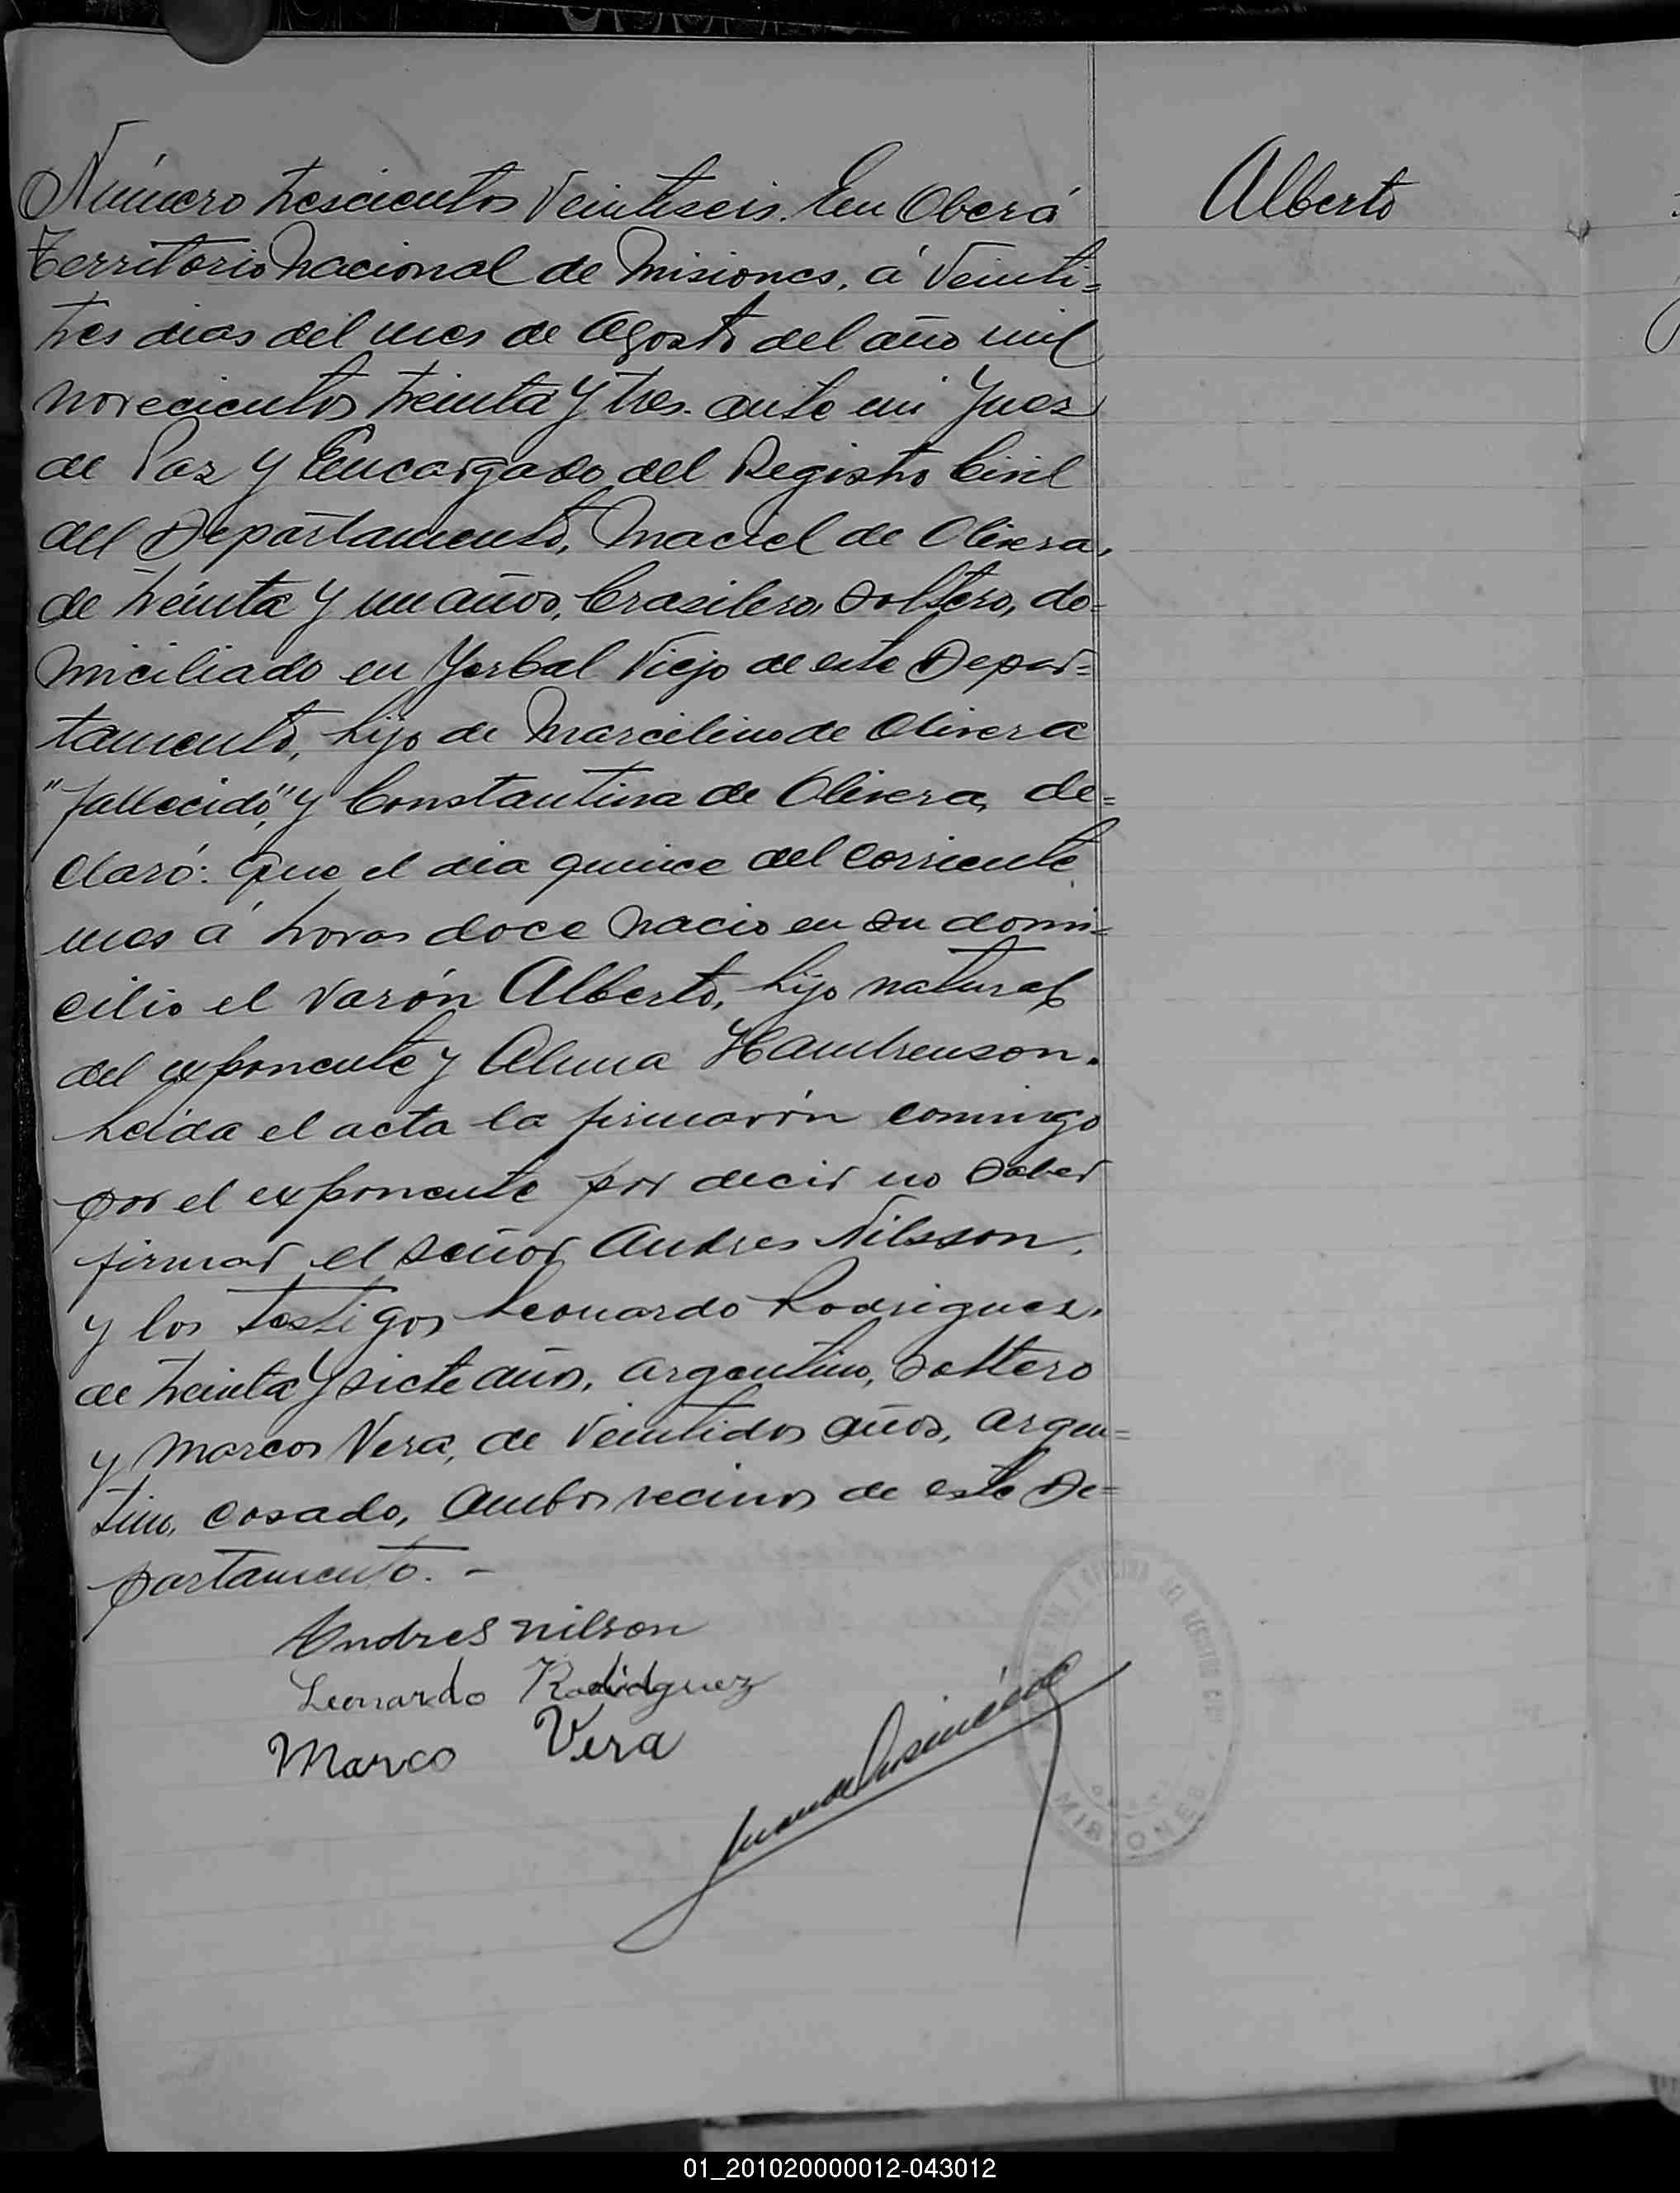 Número trescientos veintiseis. En Oberá
Alberto
Territorio Nacional de Misiones, á veinti=
tres dias del mes de Agosto del año mil
novecientos treinta y tres. ante mi Juez
de Paz y Encargado del Registro Civil
del Departamento, Maciel de Olivera,
de treinta y un años, brasilero, soltero, do=
miciliado en Yerbal Viejo de este Depar=
tamento, hijo de Marcelino de Olivera
"fallecido," y Constantina de Olivera, de=
claró: Que el dia quince del corriente
mes á horas doce nacio en su domi=
cilio el varón Alberto, hijo natural
del exponente y Alma Hambrenson.
Leida el acta la firmarón conmigo
por el exponente por decir no saber
firmar el señor Andres Nilsson,
y los testigos Leonardo Rodriguez,
de treinta y siete años, argentino, soltero
y Marcos Vera, de veintidos años, argen=
tino, casado, ambos vecinos de este De=
partamento. -
Andres nilson
Leonardo Rodidguez
Marco Vera
MISIONES
01_201020000012-043012